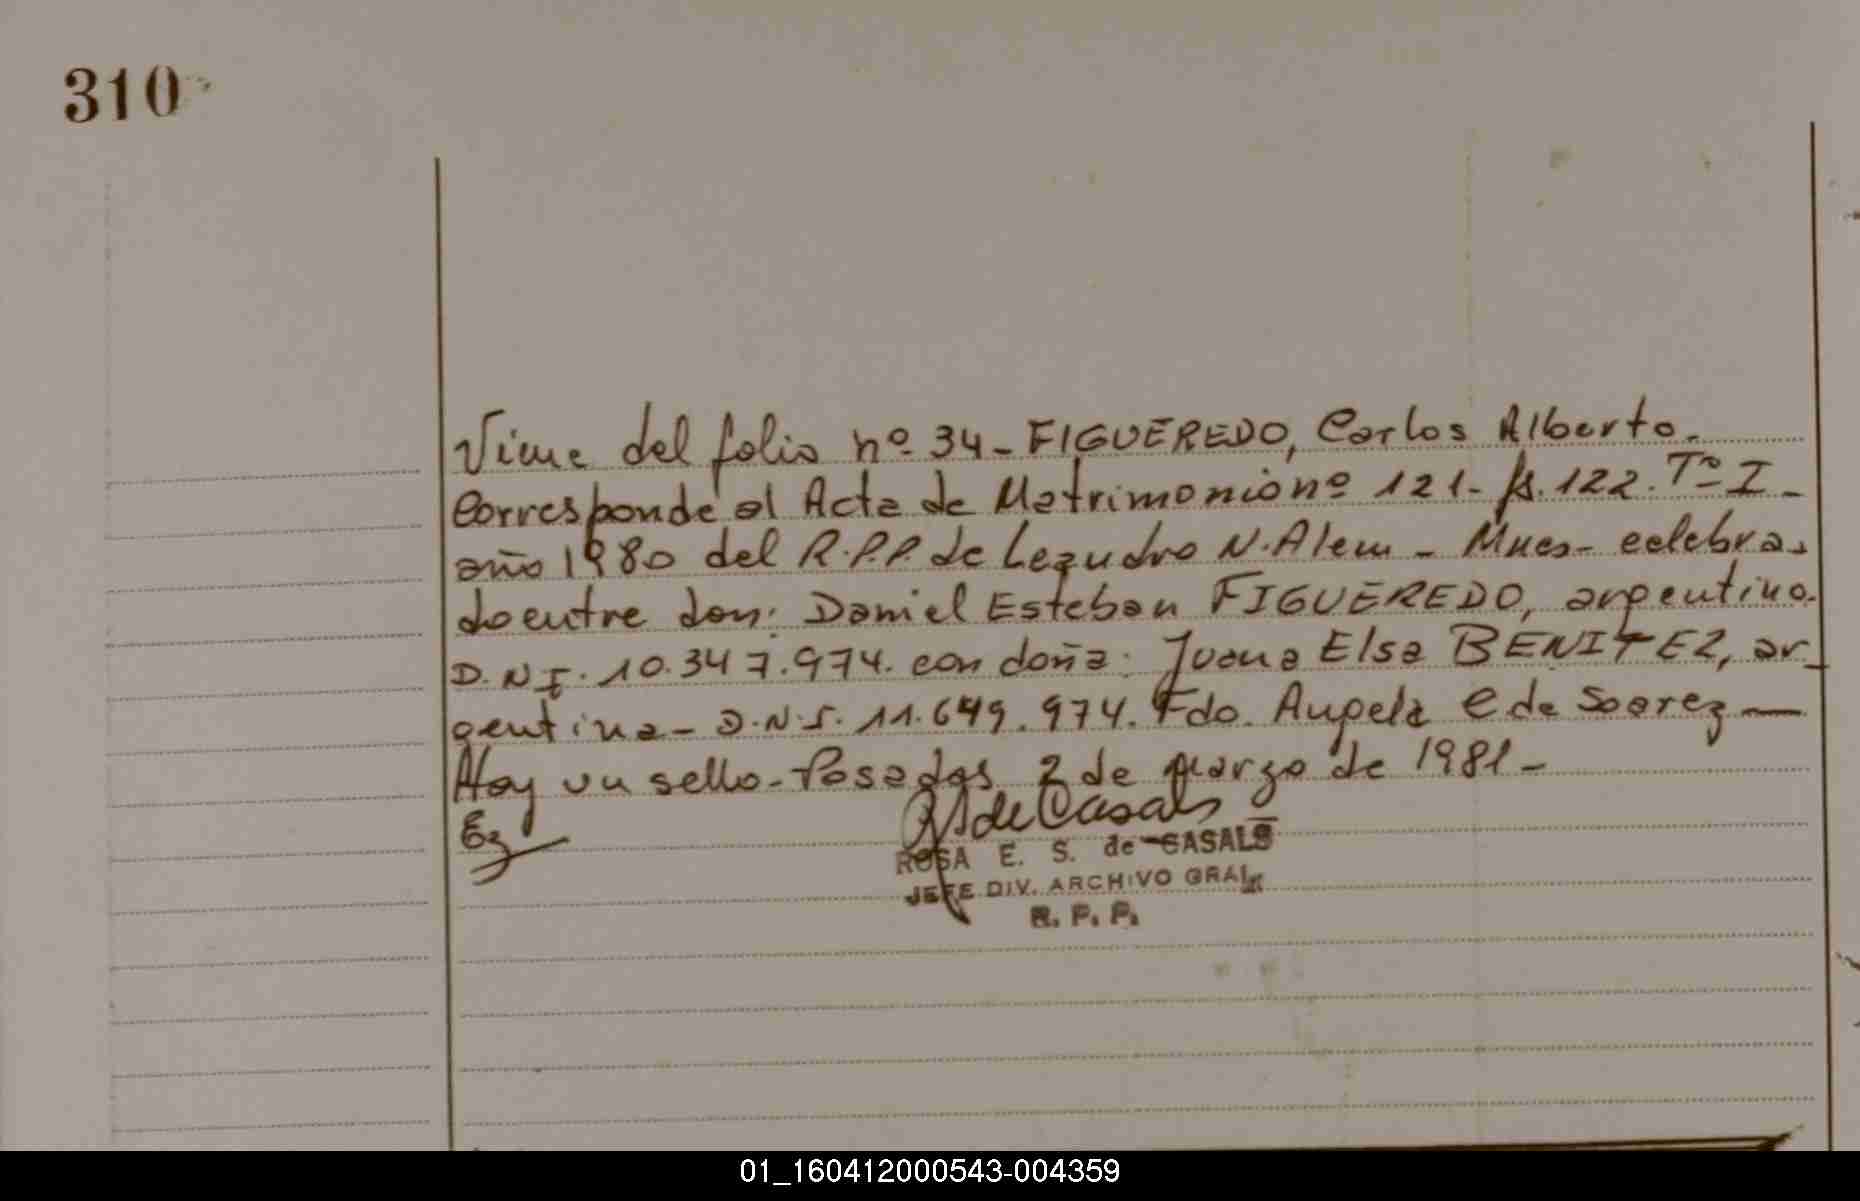 310
Viene del folio nº 34 - FIGUEREDO, Carlos Alberto.
Corresponde al Acta de Matrimonio nº 121 - fs. 122. Tº I -
año 1980 del R.P.P. de Leandro N. Alem - Mnes - celebra-
do entre don: Daniel Esteban FIGUEREDO, argentino.
D.N.I. 10.347.974. con doña: Juana Elsa BENITEZ, ar-
gentina - D.N.I. 11.649.974. Fdo. Angela C de Soarez —
Hay un sello - Posadas 2 de Marzo de 1981 -
de Casals
ROSA E. S. de CASALS
JEFE DIV. ARCHIVO GRAL.
R. P. P.
01_160412000543-004359